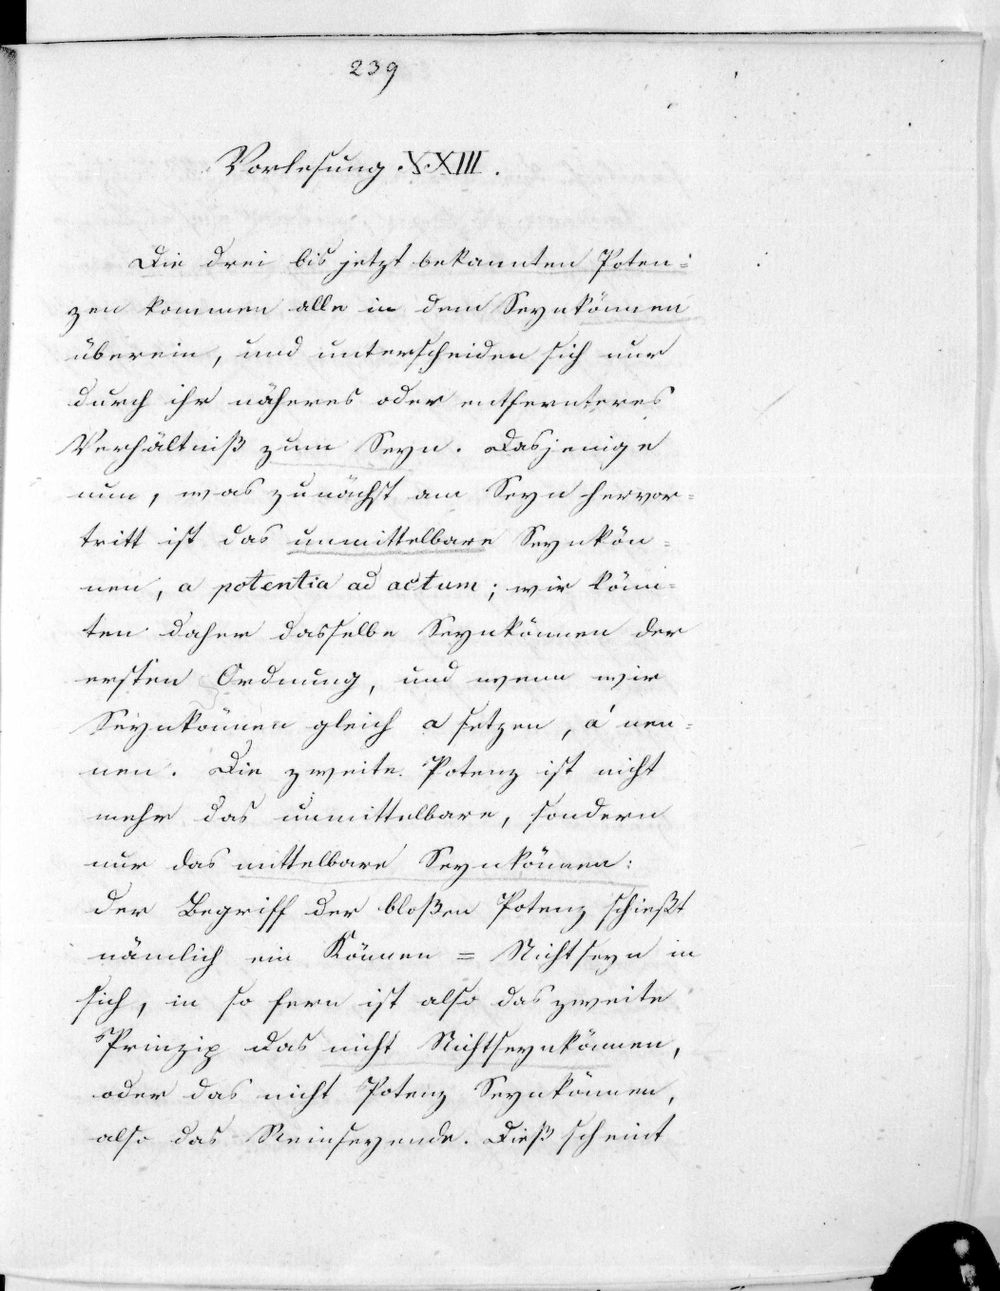 239
Vorlesung XXIII.
Die drei bis jetzt bekannten Poten=
zen kommen alle in dem Seynkönnen
überein, und unterscheiden sich nur
durch ihr näheres oder entfernteres
Verhältniß zum Seyn. Dasjenige
nun, was zunächst am Seyn hervor=
tritt ist das unmittelbare Seynkön=
nen, a potentia ad actum; wir könn=
ten daher dasselbe Seynkönnen der
ersten Ordnung, und wenn wir
Seynkönnen gleich a setzen, a' nen=
nen. Die zweite Potenz ist nicht
mehr das unmittelbare, sondern
nur das mittelbare Seynkönnen:
der Begriff der bloßen Potenz schießt
nämlich ein Können = Nichtseyn in
sich, in so fern ist also das zweite
Prinzip das nicht Nichtseynkönnen,
oder das nicht Potenz Seynkönnen,
also das Reinseyende. Dieß scheint